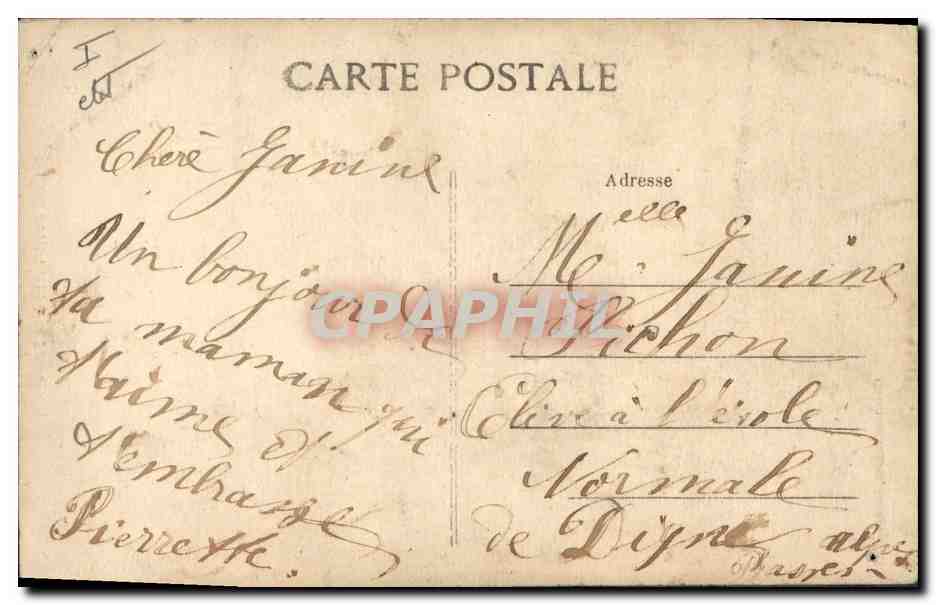 CARTE POSTALE
Chère Janine
Un bonjour de
ta maman qui
t'aime et
t'embrasse
Pierrette.
Adresse
Melle Janine
Pichon
Elève à l'école
Normale
de Digne alpes
Basses
CPAPHIL